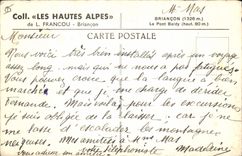 Coll. «LES HAUTES ALPES»
de L. FRANCOU - Briançon
BRIANÇON (1326 m.)
Le Pont Baldy (haut. 90 m.)
M. Mas
CARTE POSTALE
Monsieur
Nous voici très bien installés après un voyage
assez long mais qui ne nous a pas fatigués.
Vous pouvez croire que la langue a bien
marché et que j'ai de dérider
Fernande. Mais voilà, pour les excursions
je suis obligée de la laisser car je ne
me lasse d'escalader les montagnes
neigeuses. Mes amitiés à Mme Mas
Votre téléphoniste
Madeleine